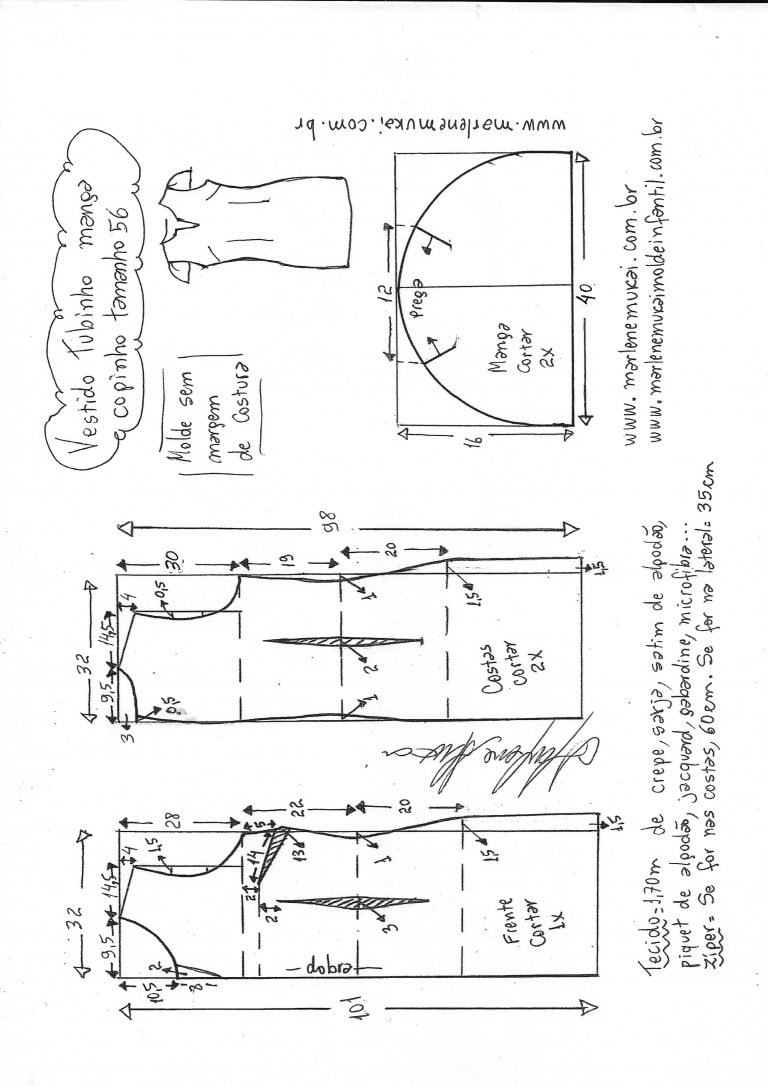 Vestido Tubinho manga
copinho tamanho 56
Molde sem
margem
de Costura
www.marlenemukai.com.br
12
prega
Manga
Cortar
2x
40
16
www.marlenemukai.com.br
www.marlenemukaimoldeinfantil.com.br
98
30
19
20
32
9,5
14,5
4
0,5
3
0,5
1
2
1
1,5
1,5
Costas
cortar
2x
101
28
22
20
32
9,5
14,5
4
1,5
10,5
2
8
5
14
13
2
2
1
3
1,5
1,5
dobra
Frente
Cortar
1x
Tecido=1,70m de crepe, sarja, satim de algodão,
piquet de algodão, jacquard, gabardine, microfibra...
Ziper= Se for nas costas, 60cm. Se for na lateral= 35cm